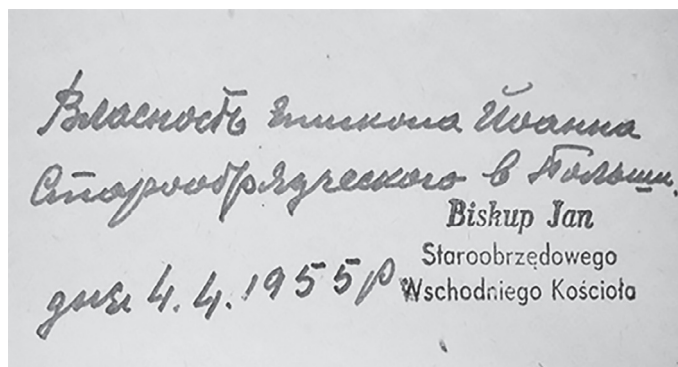 Власность епископа Иоанна
Старообрядческого в Польши.
Biskup Jan
Staroobrzędowego
Wschodniego Kościoła
дня 4.4.1955 р